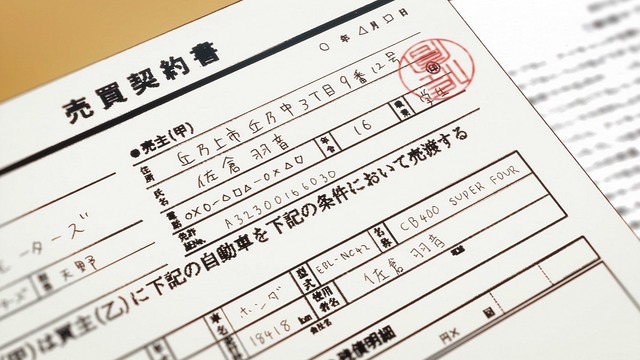 売買契約書
○年△月□日
●売主(甲)
住所 丘乃上市丘乃中3丁目9番12号
氏名 佐倉 羽音 年令 16 職業 学生
電話 ○×○-△□△-○×△□
免許証No. A32300166030
モーターズ
天野
(甲)は買主(乙)に下記の自動車を下記の条件において売渡する
車名 ホンダ 型式 EBL-NC42 名称 CB400 SUPER FOUR
18418 km 使用者名 佐倉 羽音 電話
会社名
残債明細
円×